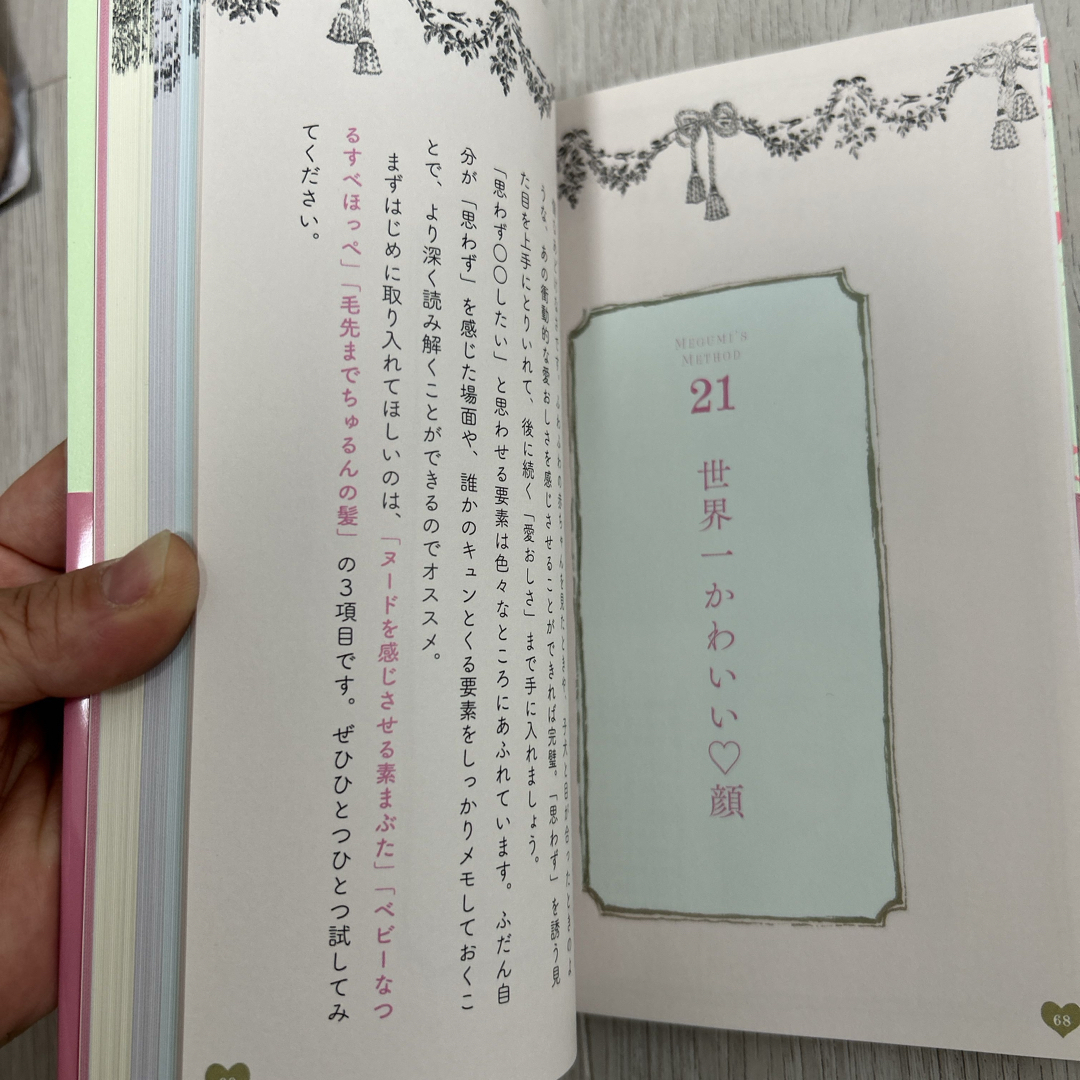 MEGUMI'S
METHOD
21
世界一かわいい♡顔
68
ふわふわの赤ちゃんを見たときや、子犬と目が合ったときのよ
うな、あの衝動的な愛おしさを感じさせることができれば完璧。「思わず」を誘う見
た目を上手にとりいれて、後に続く「愛おしさ」まで手に入れましょう。
「思わず〇〇したい」と思わせる要素は色々なところにあふれています。ふだん自
分が「思わず」を感じた場面や、誰かのキュンとくる要素をしっかりメモしておくこ
とで、より深く読み解くことができるのでオススメ。
まずはじめに取り入れてほしいのは、「ヌードを感じさせる素まぶた」「ベビーなつ
るすべほっぺ」「毛先までちゅるんの髪」の3項目です。ぜひひとつひとつ試してみ
てください。